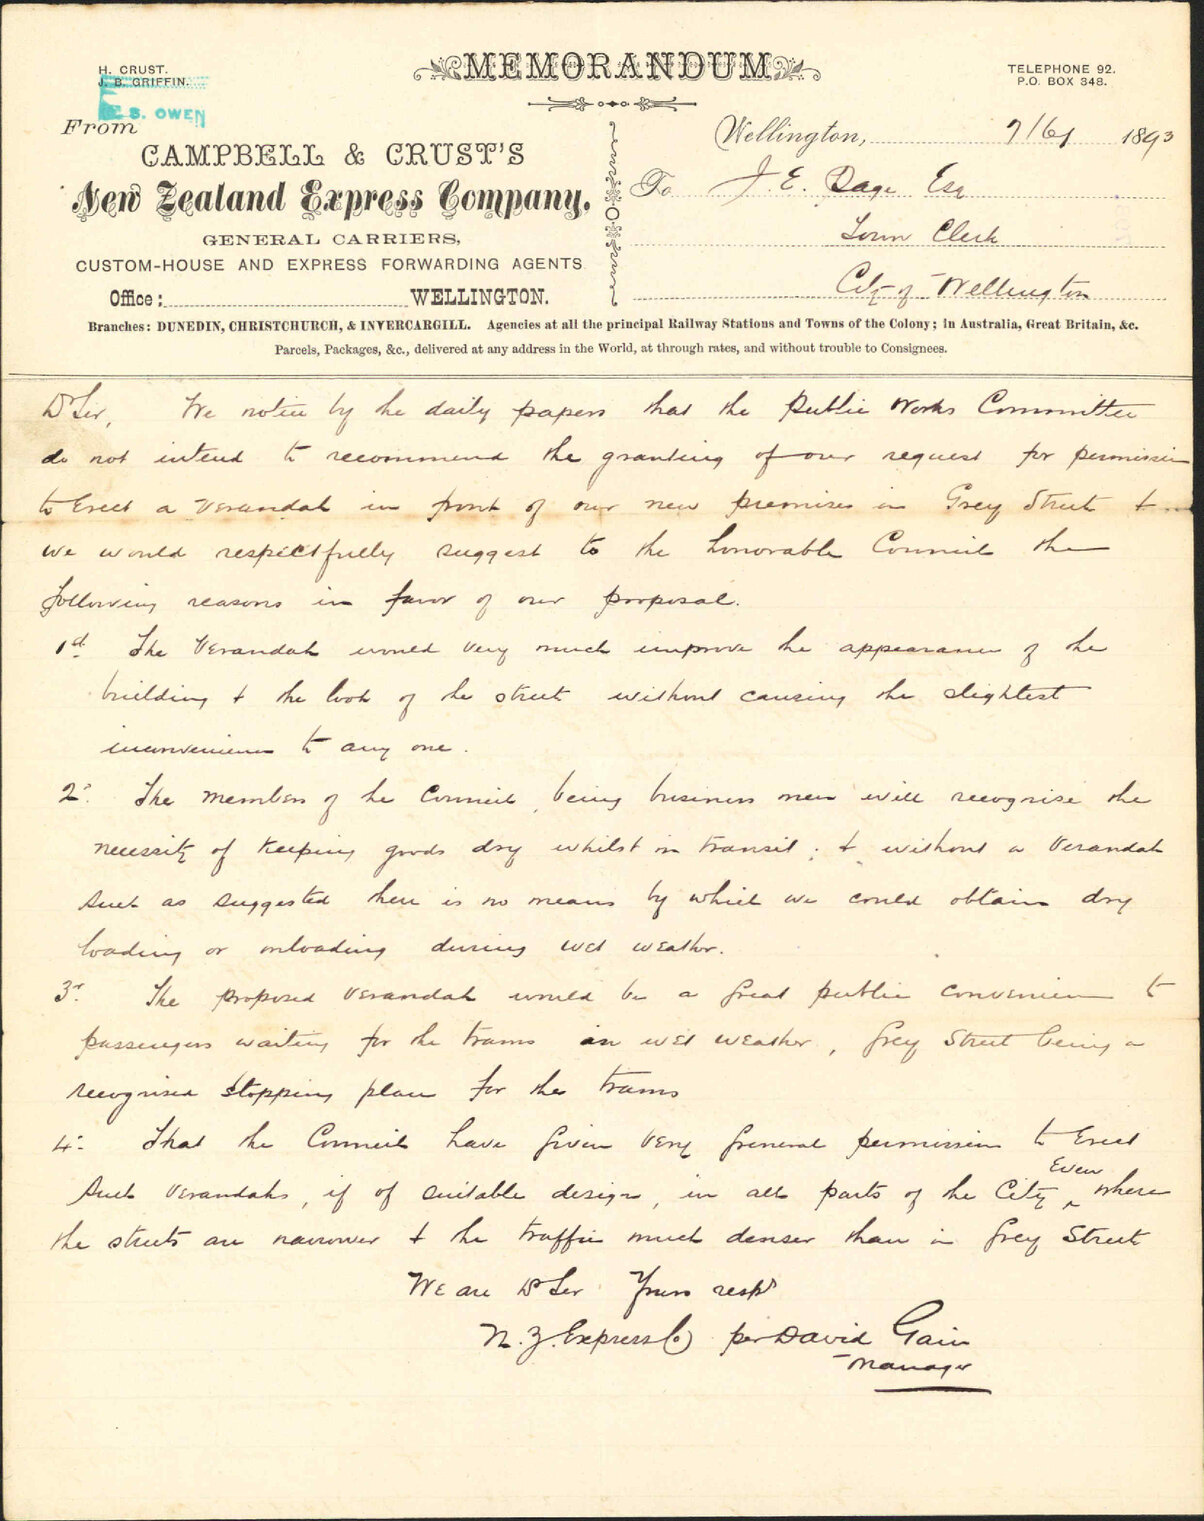 MEMORANDUM
H. CRUST.
J. B. GRIFFIN.
B. OWEN
TELEPHONE 92.
P.O. BOX 348.
From
CAMPBELL & CRUST'S
New Zealand Express Company.
GENERAL CARRIERS,
CUSTOM-HOUSE AND EXPRESS FORWARDING AGENTS
Office: WELLINGTON.
Wellington, 7/6/ 1893
To J. E. Page Esq
Town Clerk
City of Wellington
Branches: DUNEDIN, CHRISTCHURCH, & INVERCARGILL. Agencies at all the principal Railway Stations and Towns of the Colony; in Australia, Great Britain, &c.
Parcels, Packages, &c., delivered at any address in the World, at through rates, and without trouble to Consignees.
Dr Sir, We notice by the daily papers that the Public Works Committee
do not intend to recommend the granting of our request for permission
to Erect a Verandah in front of our new premises in Grey Street &
we would respectfully suggest to the honorable Council the
following reasons in favor of our proposal.
1st The Verandah would very much improve the appearance of the
building & the look of the street without causing the slightest
inconvenience to any one.
2: The members of the Council, being business men will recognise the
necessity of keeping goods dry whilst in transit; & without a Verandah
such as suggested there is no means by which we could obtain dry
loading or unloading during wet weather.
3r The proposed Verandah would be a great public convenience to
passengers waiting for the trams in wet weather, Grey Street being a
recognised stopping place for the trams
4: That the Council have given very general permission to Erect
such Verandahs, if of suitable design, in all parts of the City ^Even where
the streets are narrower & the traffic much denser than in Grey Street
We are Dr Sir Yours respy
N. Z. Express Co per David Gain
Manager